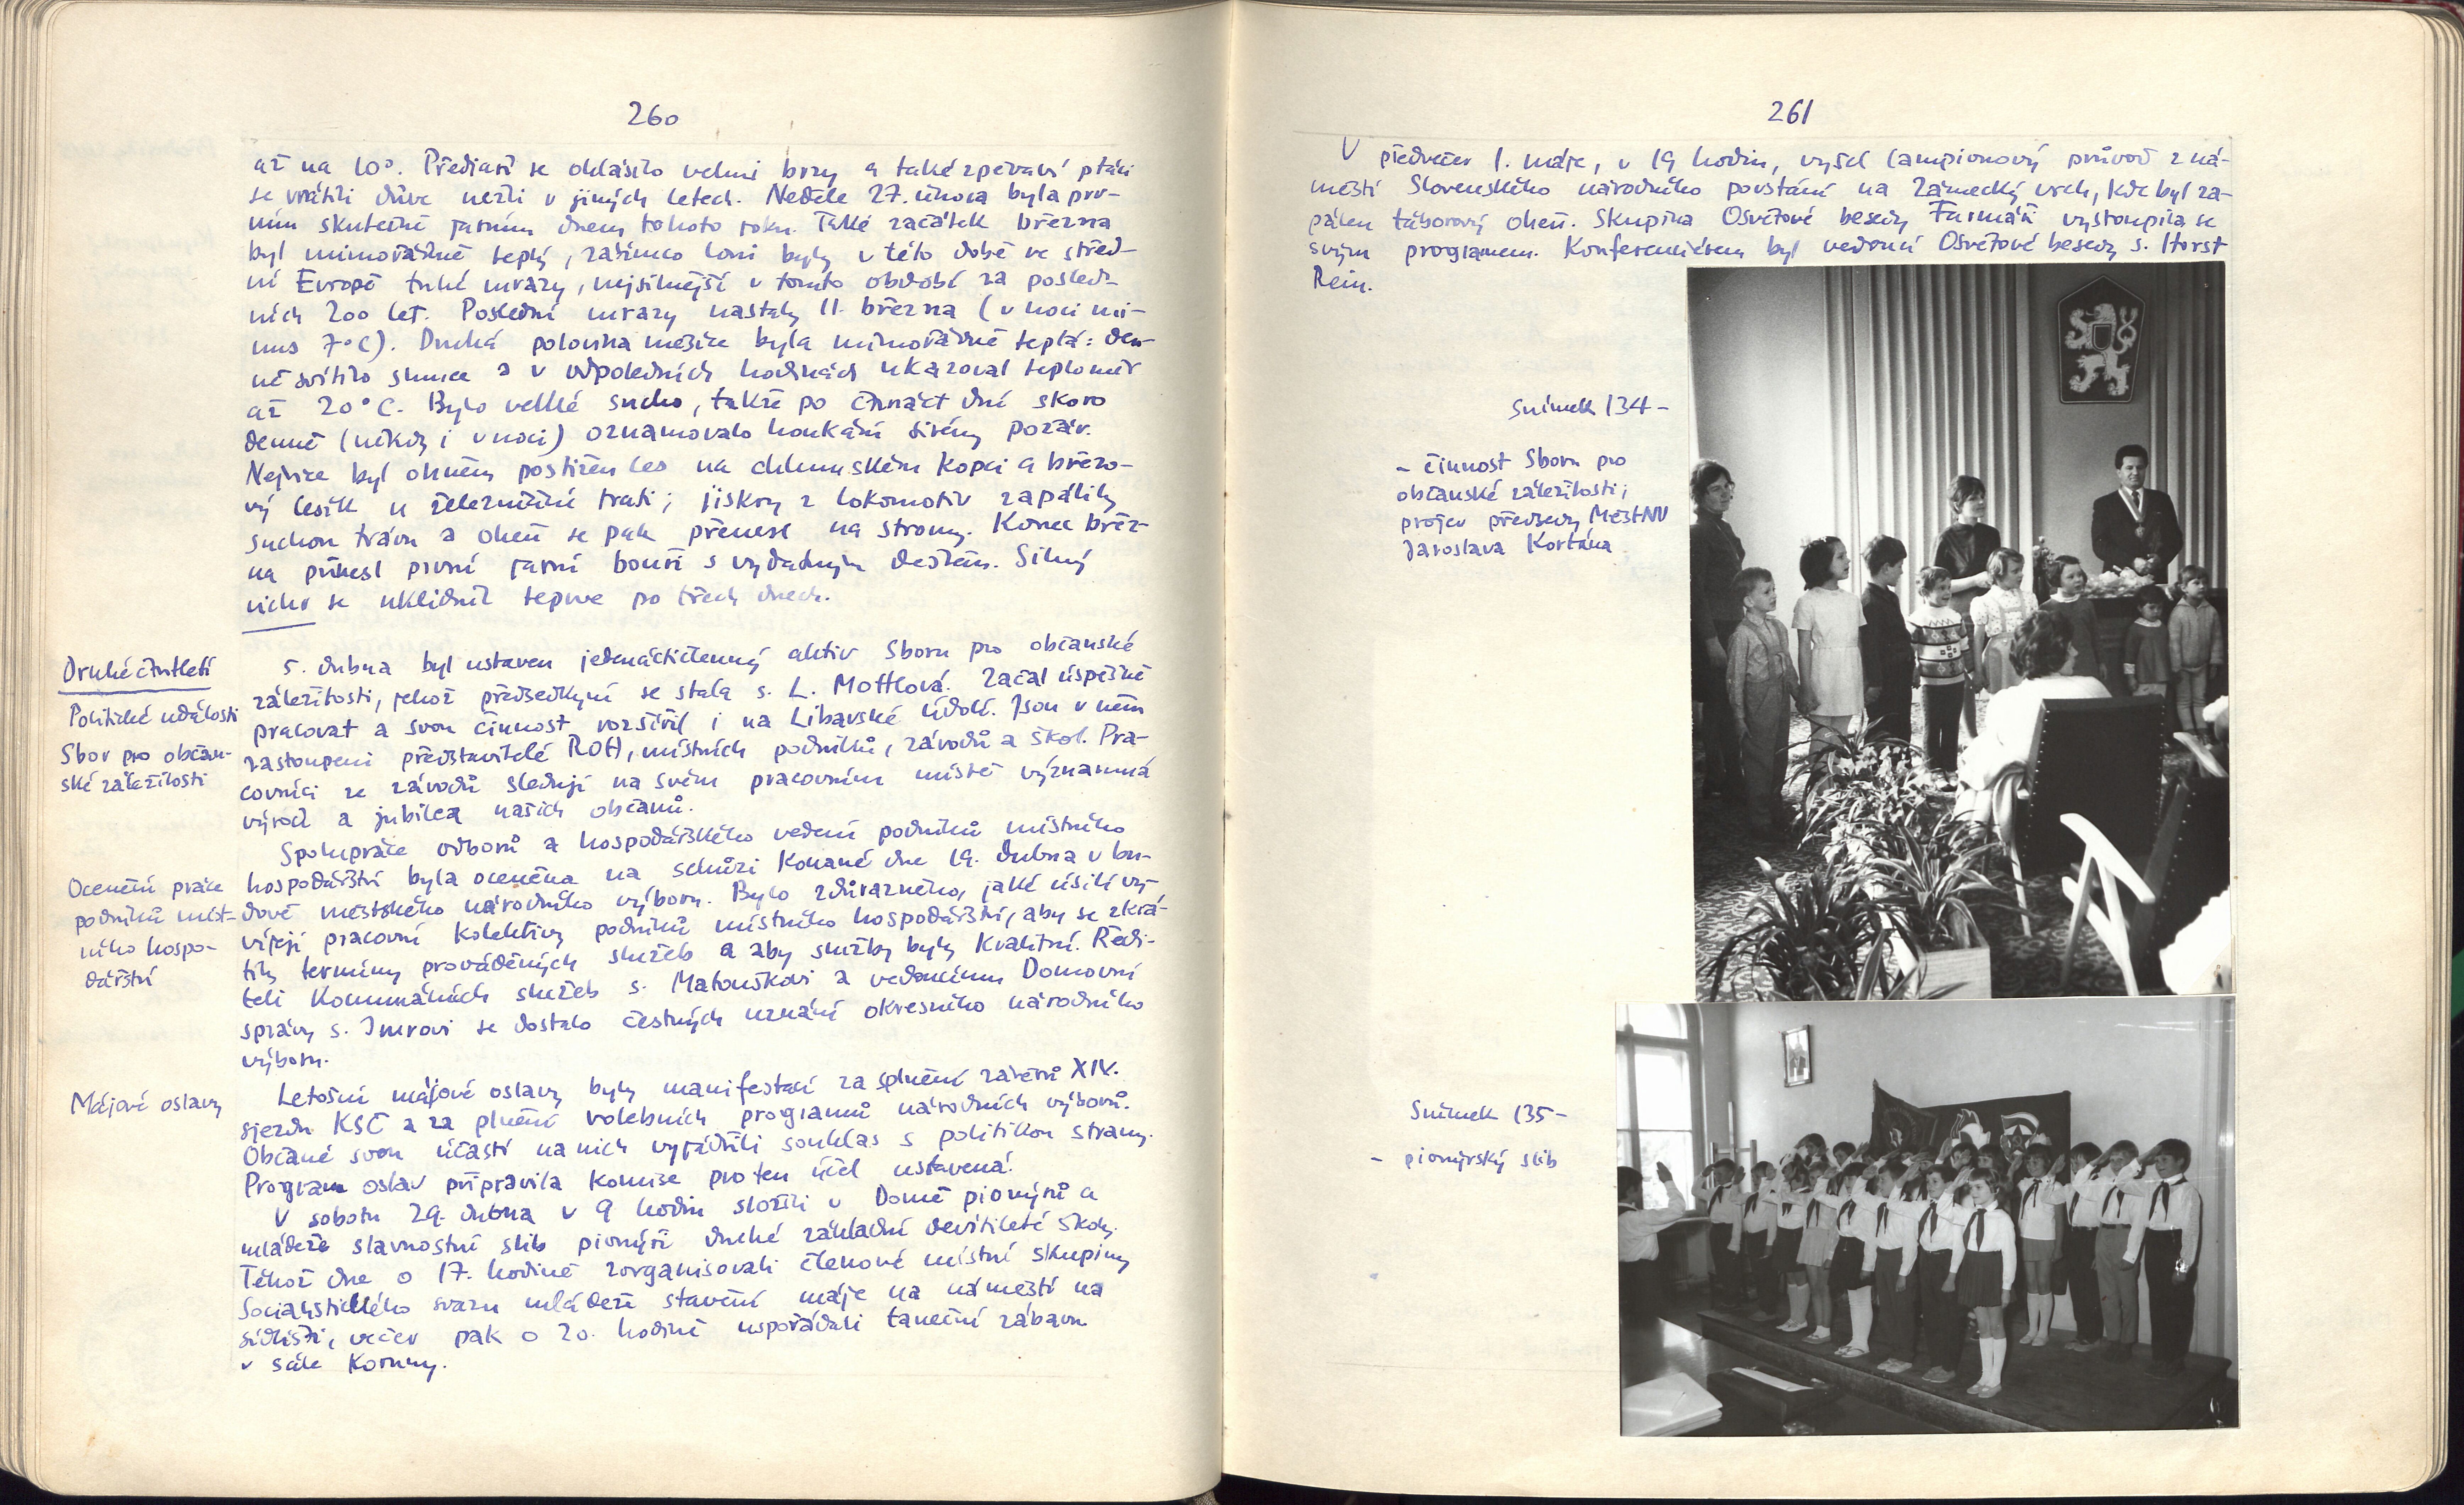 260
až na 10°. Předjaří se ohlásilo velmi brzy a také zpěvaví ptáci
se vrátili dříve nežli v jiných letech. Neděle 27. února byla prv-
ním skutečně jarním dnem tohoto roku. Také začátek března
byl mimořádně teplý, zatímco loni byly v této době ve střed-
ní Evropě tuhé mrazy, nejsilnější v tomto období za posled-
ních 200 let. Poslední mrazy nastaly 11. března (v noci mí-
nus 7°C). Druhá polovina měsíce byla mimořádně teplá: den-
ně svítilo slunce a v odpoledních hodinách ukazoval teploměr
až 20°C. Bylo velké sucho, takže po čtrnáct dní skoro
denně (někdy i v noci) oznamovalo houkání sirény požár.
Nejvíce byl ohněm postižen les na chlumském kopci a březo-
vý lesík u železniční trati; jiskry z lokomotiv zapálily
suchou trávu a oheň se pak přenesl na stromy. Konec břez-
na přinesl první jarní bouři s vydatným deštěm. Silný
vichr se uklidnil teprve po třech dnech.
Druhé čtvrtletí
Politické události
Sbor pro občan-
ské záležitosti
5. dubna byl ustaven jedenáctičlenný aktiv Sboru pro občanské
záležitosti, jehož předsedkyní se stala s. L. Mottlová. Začal úspěšně
pracovat a svou činnost rozšířil i na Libavské údolí. Jsou v něm
zastoupeni představitelé ROH, místních podniků, závodů a škol. Pra-
covníci ze závodů sledují na svém pracovním místě významná
výročí a jubilea našich občanů.
Ocenění práce
podniků míst-
ního hospo-
dářství
Spolupráce odborů a hospodářského vedení podniků místního
hospodářství byla oceněna na schůzi konané dne 19. dubna v bu-
dově městského národního výboru. Bylo zdůrazněno, jaké úsilí vy-
víjejí pracovní kolektivy podniků místního hospodářství, aby se zkrá-
tily termíny prováděných služeb a aby služby byly kvalitní. Ředi-
teli Komunálních služeb s. Matouškovi a vedoucímu Domovní
správy s. Imrovi se dostalo čestných uznání okresního národního
výboru.
Májové oslavy
Letošní májové oslavy byly manifestací za splnění závěrů XIV.
sjezdu KSČ a za plnění volebních programů národních výborů.
Občané svou účastí na nich vyjádřili souhlas s politikou strany.
Program oslav připravila komise pro ten účel ustavená.
V sobotu 29. dubna v 9 hodin složili v Domě pionýrů a
mládeže slavnostní slib pionýři druhé základní devítileté školy.
Téhož dne o 17. hodině zorganisovali členové místní skupiny
Socialistického svazu mládeže stavění máje na náměstí na
sídlišti, večer pak o 20. hodině uspořádali taneční zábavu
v sále Koruny.
261
V předvečer 1. máje, v 19 hodin, vyšel lampionový průvod z ná-
městí Slovenského národního povstání na Zámecký vrch, kde byl za-
pálen táborový oheň. Skupina Osvětové besedy Farmáři vystoupila se
svým programem. Konferenciérem byl vedoucí Osvětové besedy s. Horst
Rein.
Snímek 134 -
- činnost Sboru pro
občanské záležitosti;
projev předsedy MěstNV
Jaroslava Kortána
Snímek 135 -
- pionýrský slib